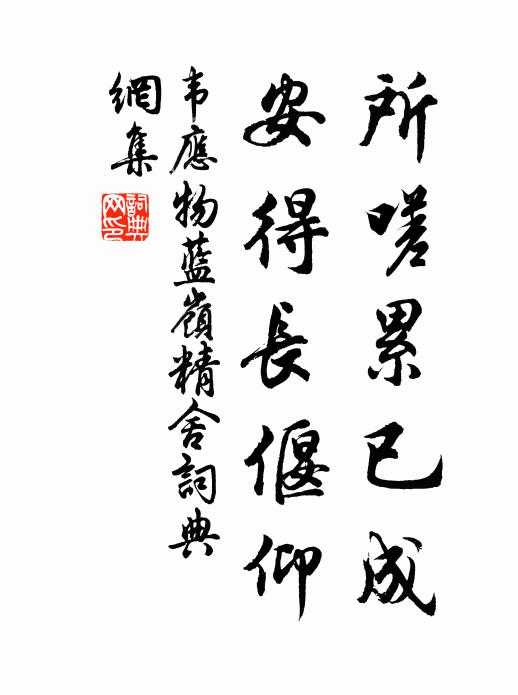 所嗟累已成
安得長偃仰
韦應物藍嶺精舍詞典
網集
詞典
网印